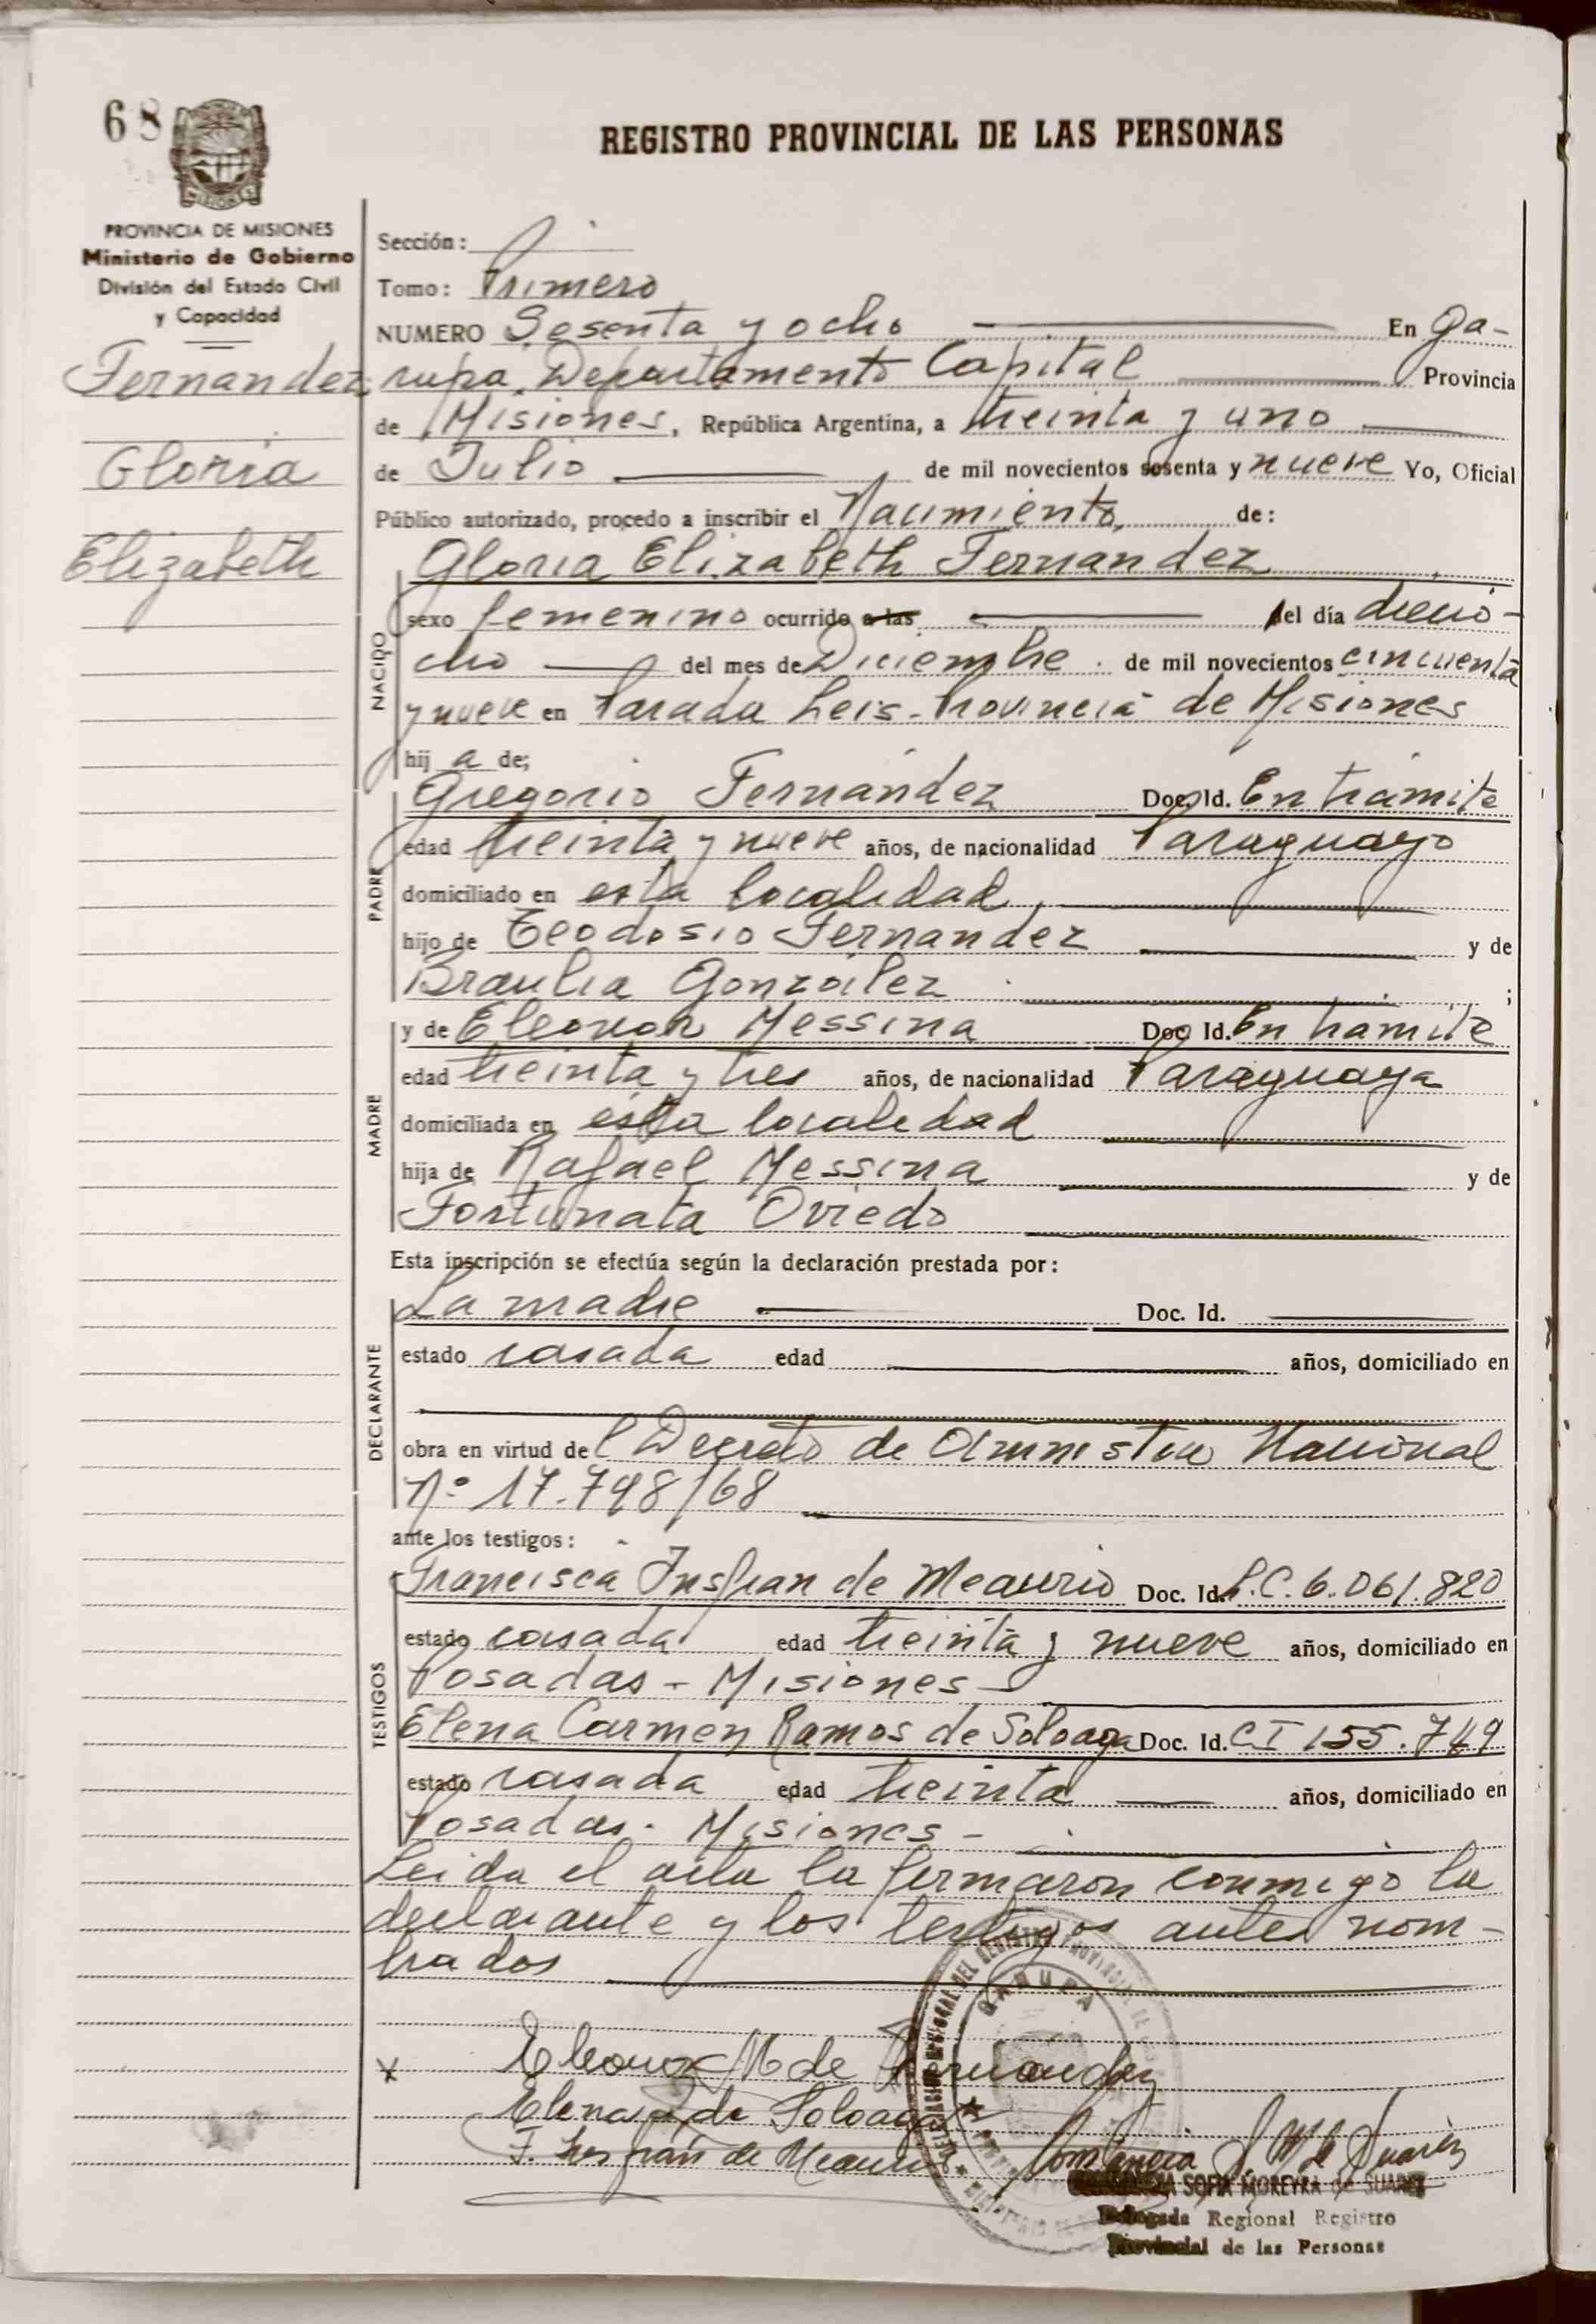 68
REGISTRO PROVINCIAL DE LAS PERSONAS
PROVINCIA DE MISIONES
Ministerio de Gobierno
División del Estado Civil
y Capacidad
Fernandez
Gloria
Elizabeth
Sección:
Tomo: Primero
NUMERO Sesenta y ocho En Ga-
rupa, Departamento Capital Provincia
de Misiones, República Argentina, a treinta y uno
de Julio de mil novecientos sesenta y nueve Yo, Oficial
Público autorizado, procedo a inscribir el Nacimiento, de:
Gloria Elizabeth Fernandez
NACIDO
sexo femenino ocurrido a las del día diecio-
cho del mes de Diciembre de mil novecientos cincuenta
y nueve en Parada Leis - Provincia de Misiones
hija de;
PADRE
Gregorio Fernández Doc. Id. En trámite
edad treinta y nueve años, de nacionalidad Paraguayo
domiciliado en esta localidad,
hijo de Teodosio Fernandez y de
Braulia González ;
MADRE
y de Eleonor Messina Doc. Id. En trámite
edad treinta y tres años, de nacionalidad Paraguaya
domiciliada en esta localidad
hija de Rafael Messina y de
Fortunata Oviedo
Esta inscripción se efectúa según la declaración prestada por:
DECLARANTE
La madre Doc. Id.
estado casada edad años, domiciliado en
obra en virtud del Decreto de Amnistia Nacional
Nº 17.798/68
ante los testigos:
TESTIGOS
Francisca Insfran de Meaurio Doc. Id. L.C. 6.061.820
estado casada edad treinta y nueve años, domiciliado en
Posadas - Misiones
Elena Carmen Ramos de Soloaga Doc. Id. C.I 155.749
estado casada edad treinta años, domiciliado en
Posadas - Misiones -
Leida el acta la firmaron conmigo la
declarante y los testigos antes nom-
brados
GARUPA
Eleonor M de Fernandez
Elena de Soloaga
F. Insfrán de Meaurio
Constancia S. M de Suarez
SOFIA MOREYRA de SUAREZ
Delegada Regional Registro
Provincial de las Personas